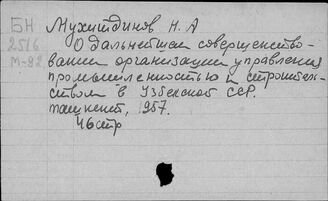 БН
2516
М-92
Мухитдинов Н. А
О дальнейшем совершенство-
вании организации управления
промышленностью и строитель-
ством в Узбекской ССР.
Ташкент, 1957.
46 стр